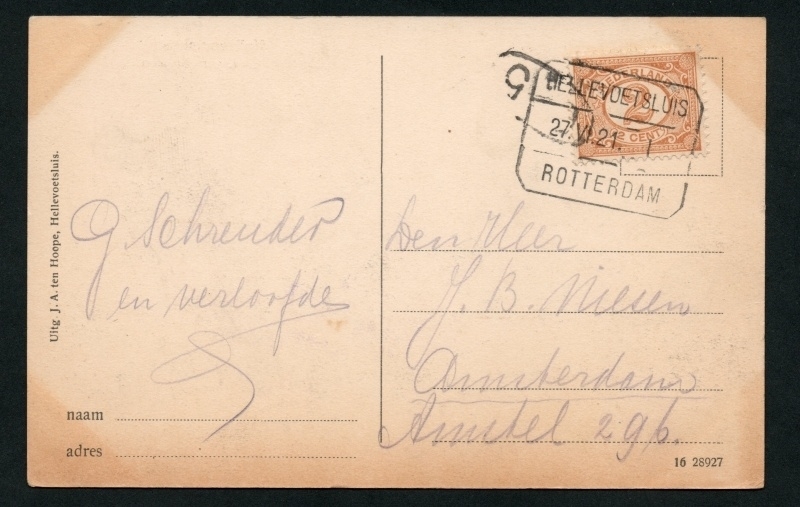 Uitg J. A. ten Hoope, Hellevoetsluis.
G Schreuder
en verloofde
naam
adres
NEDERLAND
2
2 CENT
HELLEVOETSLUIS
27.VI.21.
ROTTERDAM
5
Den Heer
J. B. Niesen
Amsterdam
Amstel 296.
16 28927